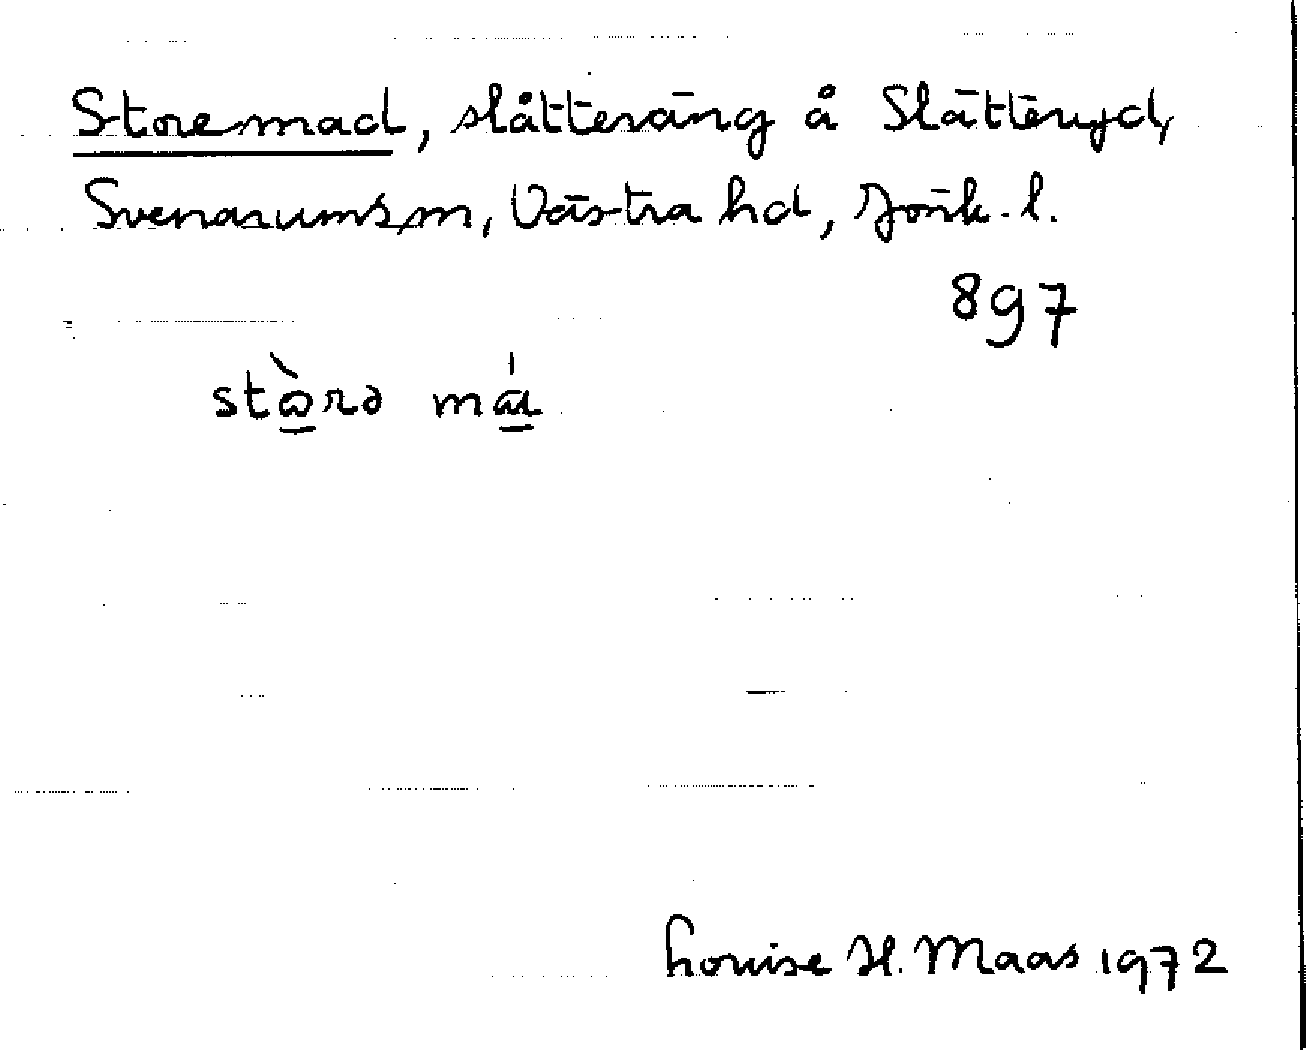 Storemad, slåtteräng å Slätteryd,
Svenarums sn, Västra hd, Jönk. l.
897
stò̠rə má̠
Louise H. Maas 1972